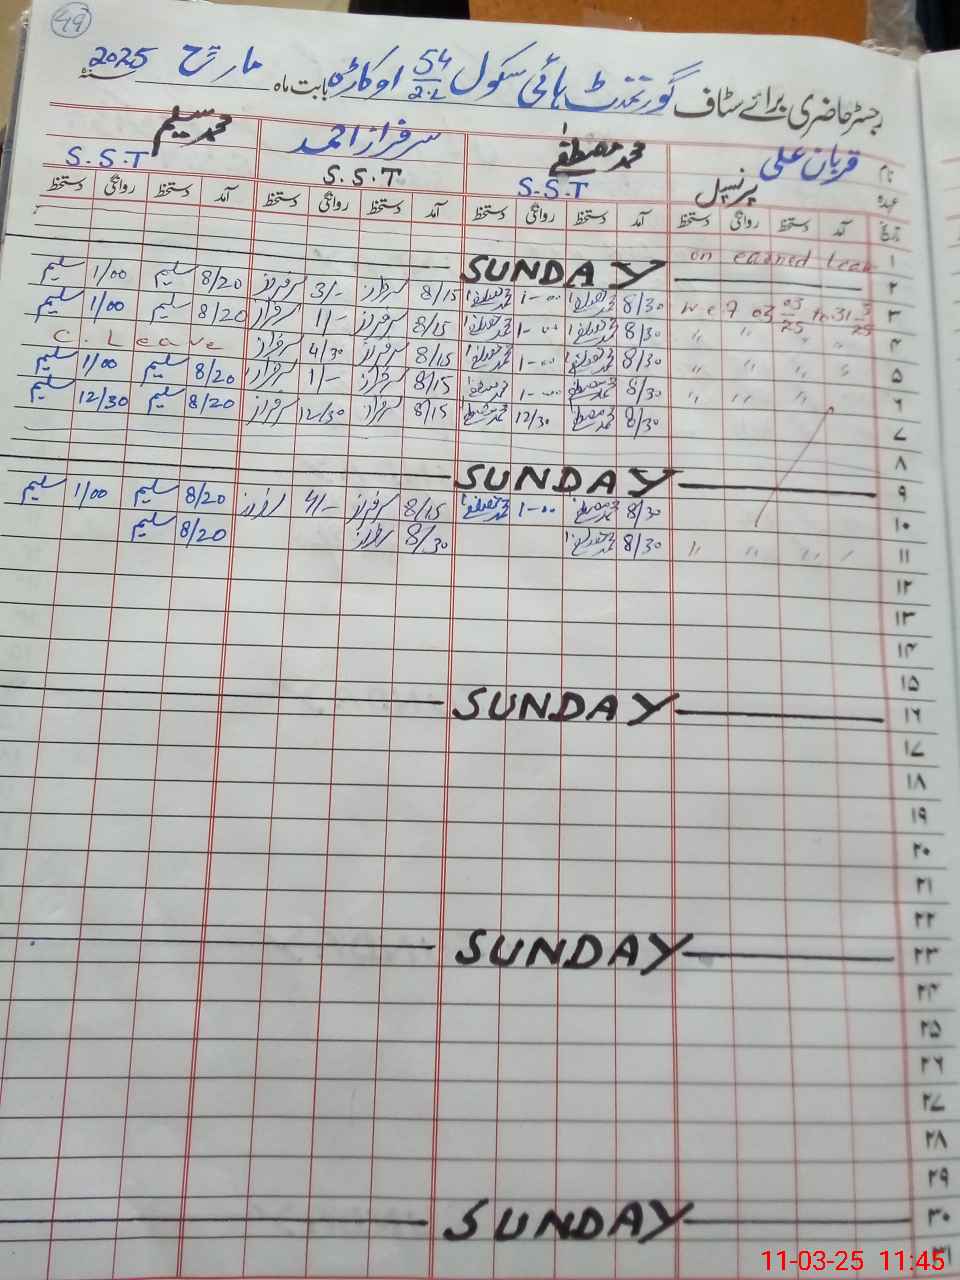 49
رجسٹر حاضری برائے سٹاف گورنمنٹ ہائی سکول 54/2.L اوکاڑہ بابت ماہ مارچ سنہ 2025
نام قربان علی محمد مصطفےٰ سرفراز احمد محمد سلیم
عہدہ پرنسپل S.S.T S.S.T S.S.T
تاریخ آمد دستخط روانگی دستخط آمد دستخط روانگی دستخط آمد دستخط روانگی دستخط آمد دستخط روانگی دستخط
۱ on earned leave
۲ SUNDAY
۳ w e f 03 03/25 to 31 3/25 8/30 1-00 8/15 سرفراز 3/- سرفراز 8/20 سلیم 1/00 سلیم
۴ " " " " 8/30 1-00 8/15 سرفراز 1/- سرفراز 8/20 سلیم 1/00 سلیم
۵ " " " " 8/30 1-00 8/15 سرفراز 4/30 سرفراز C. Leave
۶ " " " " 8/30 1-00 8/15 سرفراز 1/- سرفراز 8/20 سلیم 1/00 سلیم
۷ 8/30 محمد مصطفےٰ 12/30 محمد مصطفےٰ 8/15 سرفراز 12/30 سرفراز 8/20 سلیم 12/30 سلیم
۸
۹ SUNDAY
۱۰ 8/30 محمد مصطفےٰ 1-00 محمد مصطفےٰ 8/15 سرفراز 4/- سرفراز 8/20 سلیم 1/00 سلیم
۱۱ " " " " 8/30 محمد مصطفےٰ 8/30 سرفراز 8/20 سلیم
۱۲
۱۳
۱۴
۱۵
۱۶ SUNDAY
۱۷
۱۸
۱۹
۲۰
۲۱
۲۲
۲۳ SUNDAY
۲۴
۲۵
۲۶
۲۷
۲۸
۲۹
۳۰ SUNDAY
۳۱
11-03-25 11:45